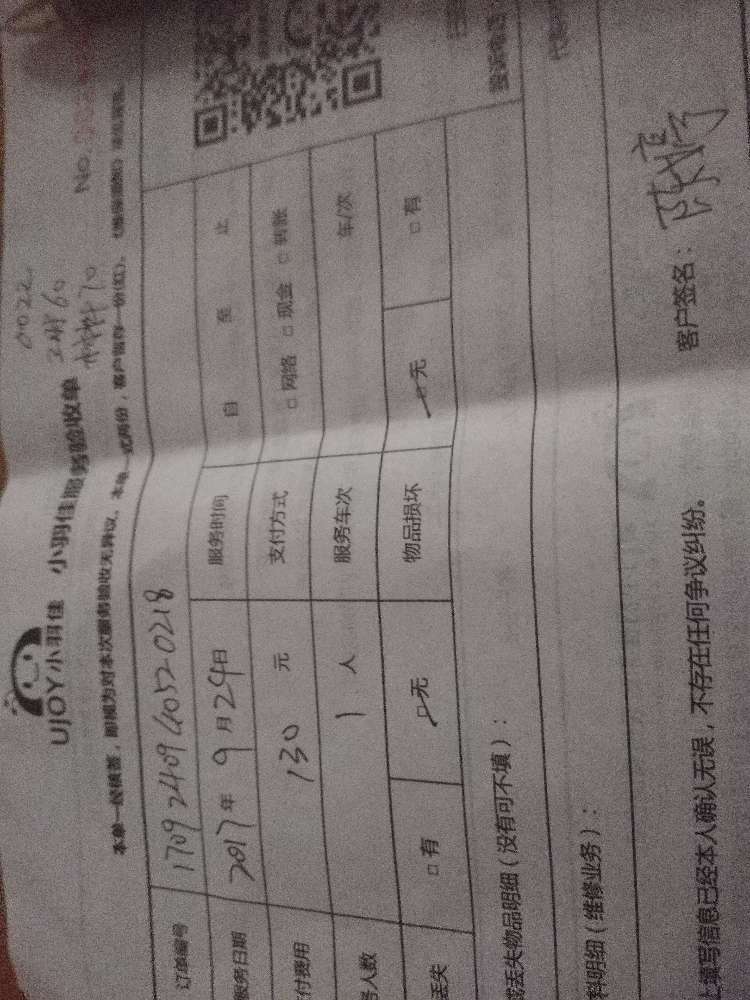 UJOY小羽佳 小羽佳服务验收单
0022
工时60
材料70
No.
本单一经核签，即视为对本次服务验收无异议。本单一式两份，客户留存一份(红)，
订单编号 170924094052 0218
服务日期 2017年9月24日 服务时间 自 至 止
付费用 130 元 支付方式 □ 网络 □ 现金 □ 转账
务人数 1 人 服务车次 车/次
丢失 □ 有 □ 无 物品损坏 □ 无 □ 有
或丢失物品明细（没有可不填）：
料明细（维修业务）：
上填写信息已经本人确认无误，不存在任何争议纠纷。 客户签名：
投诉电话：